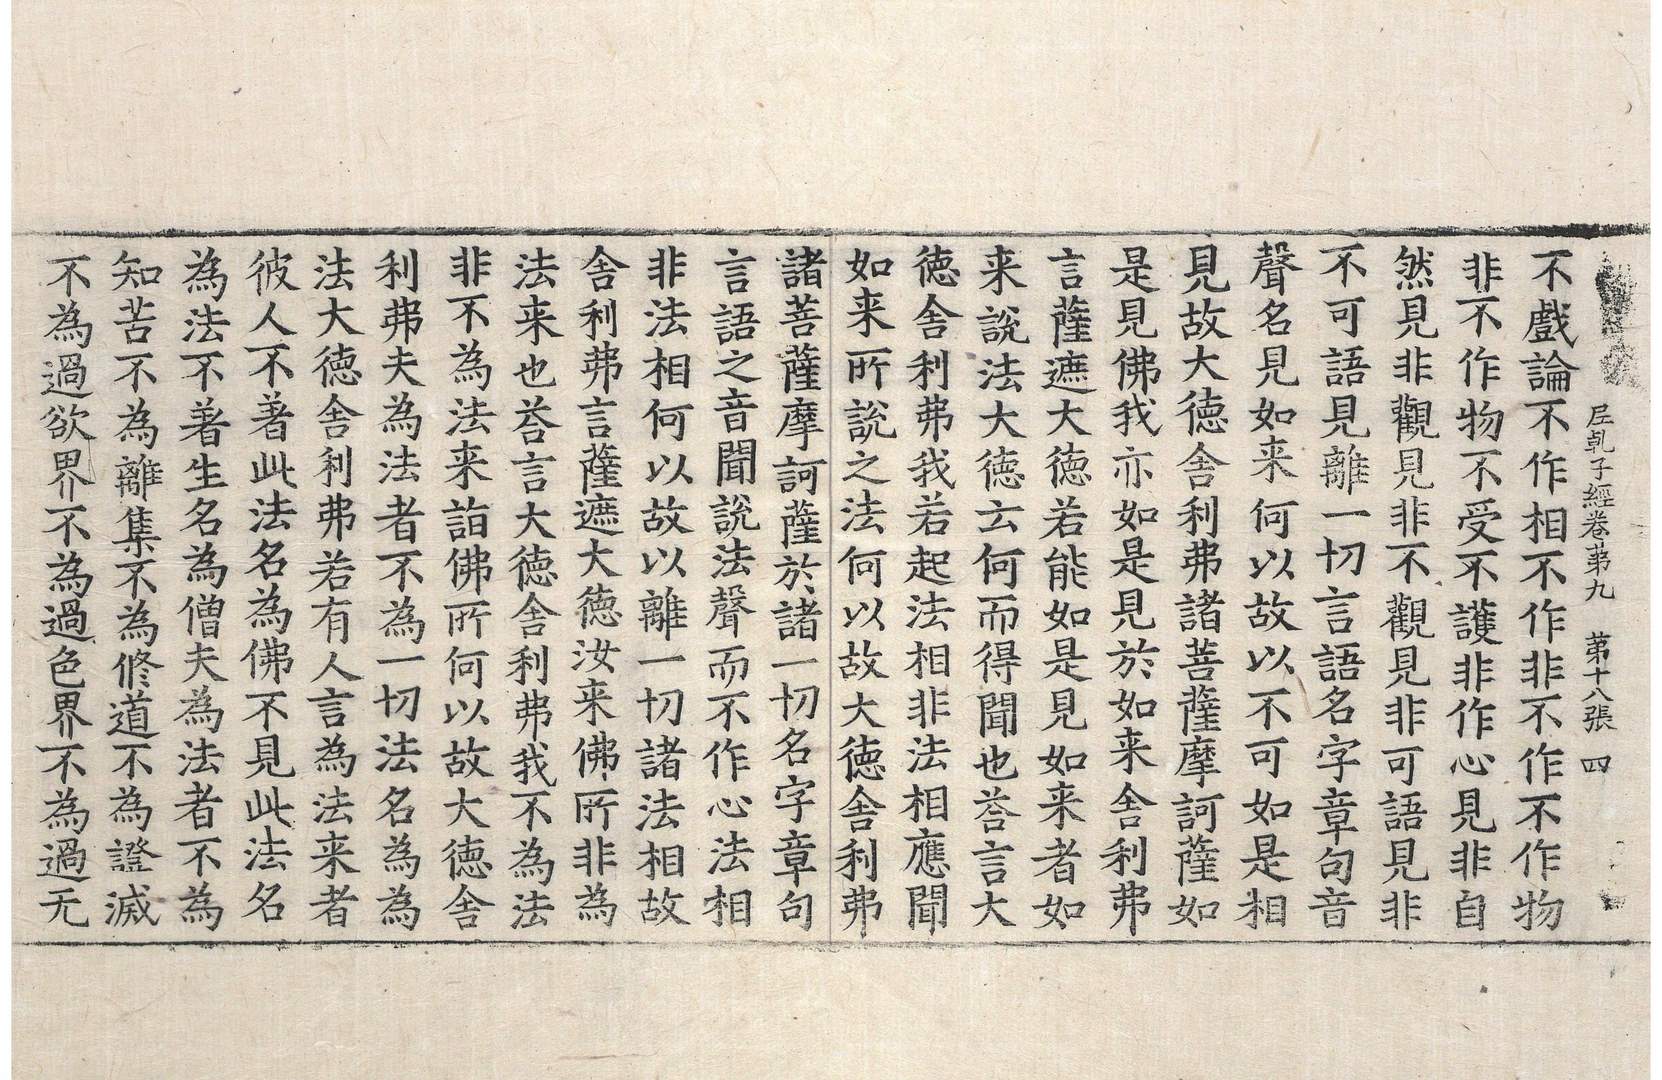 尼乹子經卷苐九　苐十八張　四
不戲論不作相不作非不作不作物
非不作物不受不護非作心見非自
然見非觀見非不觀見非可語見非
不可語見離一切言語名字章句音
聲名見如来何以故以不可如是相
見故大徳舍利弗諸菩薩摩訶薩如
是見佛我亦如是見於如来舍利弗
言薩遮大徳若能如是見如来者如
来說法大徳云何而得聞也荅言大
徳舍利弗我若起法相非法相應聞
如来所說之法何以故大徳舍利弗
諸菩薩摩訶薩於諸一切名字章句
言語之音聞說法聲而不作心法相
非法相何以故以離一切諸法相故
舍利弗言薩遮大徳汝来佛所非為
法来也荅言大徳舍利弗我不為法
非不為法来詣佛所何以故大徳舍
利弗夫為法者不為一切法名為為
法大徳舍利弗若有人言為法来者
彼人不著此法名為佛不見此法名
為法不著生名為僧夫為法者不為
知苦不為離集不為修道不為證滅
不為過欲界不為過色界不為過无